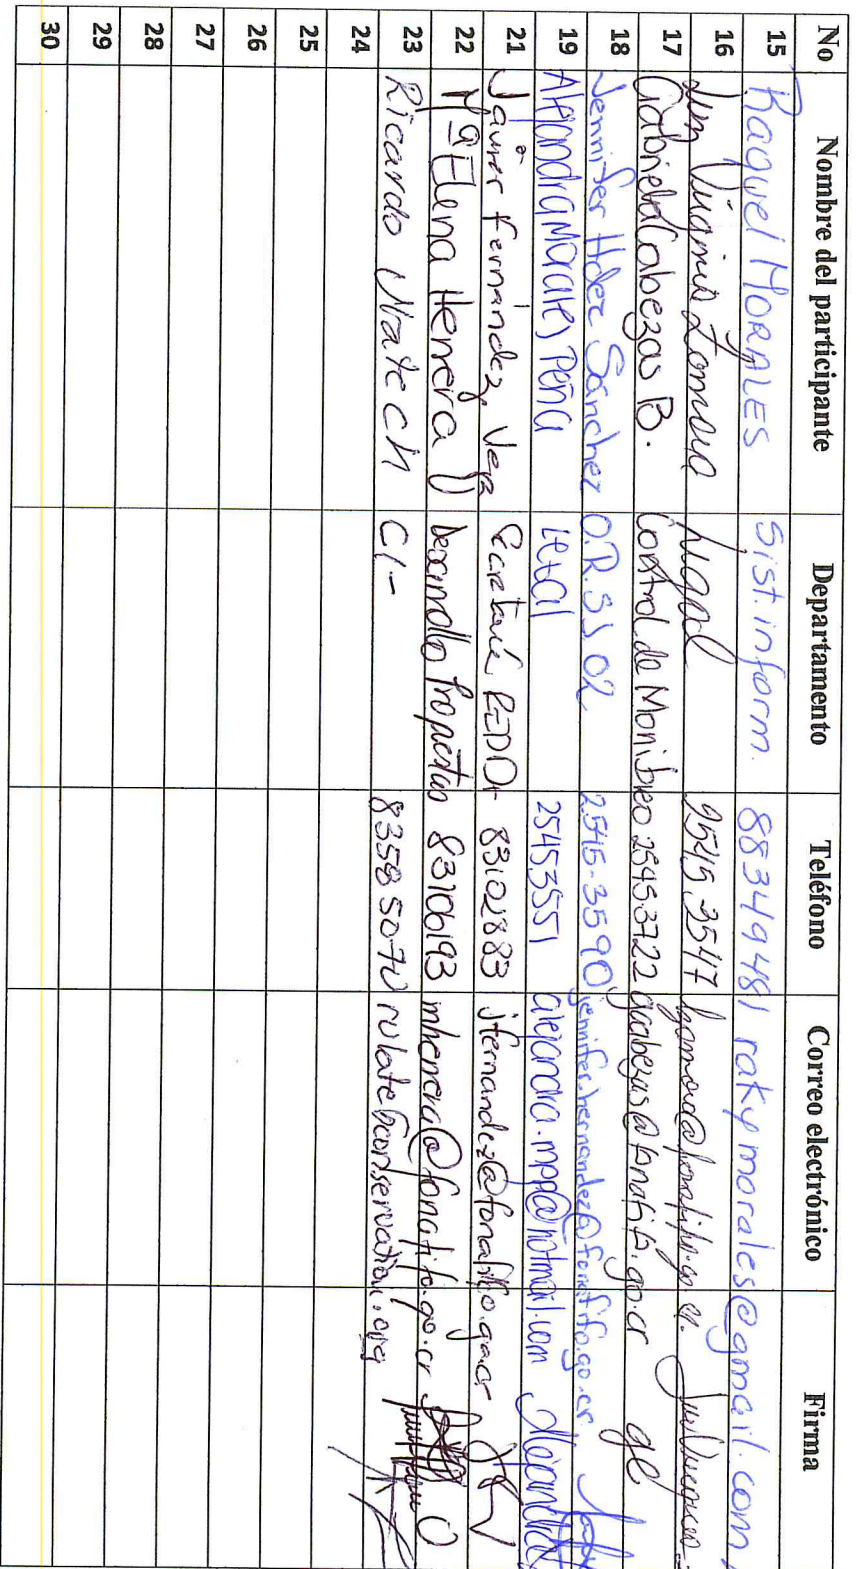 No Nombre del participante Departamento Teléfono Correo electrónico Firma
15 Raquel MORALES Sist. inform. 88349481 rakymorales@gmail.com
16 Virginia Zamora Legal 2545 3547
17 Gabriela Cabezas B. Control de Monitoreo 25453722 gcabezas@fonafifo.go.cr gc
18 Jennifer Hdez Sánchez O.R. SJ 02 2545-3590 jennifer.hernandez@fonafifo.go.cr
19 Alejandra Morales Peña Legal 25453551 alejandra.mpp@hotmail.com Alejandra
21 Javier Fernández Vega Secretaría REDD+ 83102883 jfernandez@fonafifo.go.cr
22 Mª Elena Herrera U Desarrollo Propuestas 83106193 mherrera@fonafifo.go.cr
23 Ricardo Ulate Ch CI- 83585070 rulate@conservation.org
24
25
26
27
28
29
30